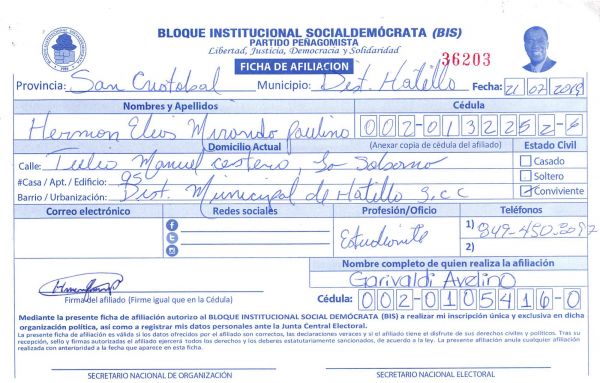 BLOQUE INSTITUCIONAL SOCIALDEMÓCRATA (BIS)
PARTIDO PEÑAGOMISTA
Libertad, Justicia, Democracia y Solidaridad
FICHA DE AFILIACION
36203
Provincia: San Cristobal Municipio: Dist. Hatillo Fecha: 21 07 2019
Nombres y Apellidos Cédula
Hermon Elias Mirando Paulino 002-0132252-6
Domicilio Actual (Anexar copia de cédula del afiliado) Estado Civil
Calle: Tulio Manuel Cestero, Casado
#Casa / Apt. / Edificio: 95 Soltero
Barrio / Urbanización: Dist. Municipal de Hatillo S.C.C Conviviente
Correo electrónico Redes sociales Profesión/Oficio Teléfonos
Estudiante 1) 849-450-3097
2)
Nombre completo de quien realiza la afiliación
Garivaldi Avelino
Firma del afiliado (Firme igual que en la Cédula) Cédula: 002-0105416-0
Mediante la presente ficha de afiliación autorizo al BLOQUE INSTITUCIONAL SOCIAL DEMÓCRATA (BIS) a realizar mi inscripción única y exclusiva en dicha
organización política, así como a registrar mis datos personales ante la Junta Central Electoral.
La presente ficha de afiliación es válida si los datos ofrecidos por el afiliado son correctos, las declaraciones veraces y si el afiliado tiene el disfrute de sus derechos civiles y políticos. Tras su
recepción, sello y firmas autorizadas el afiliado ejercerá todos los derechos y los deberes estatutariamente sancionados, de acuerdo a la ley. La presente afiliación anula cualquier afiliación
realizada con anterioridad a la fecha que aparece en esta ficha.
SECRETARIO NACIONAL DE ORGANIZACIÓN SECRETARIO NACIONAL ELECTORAL